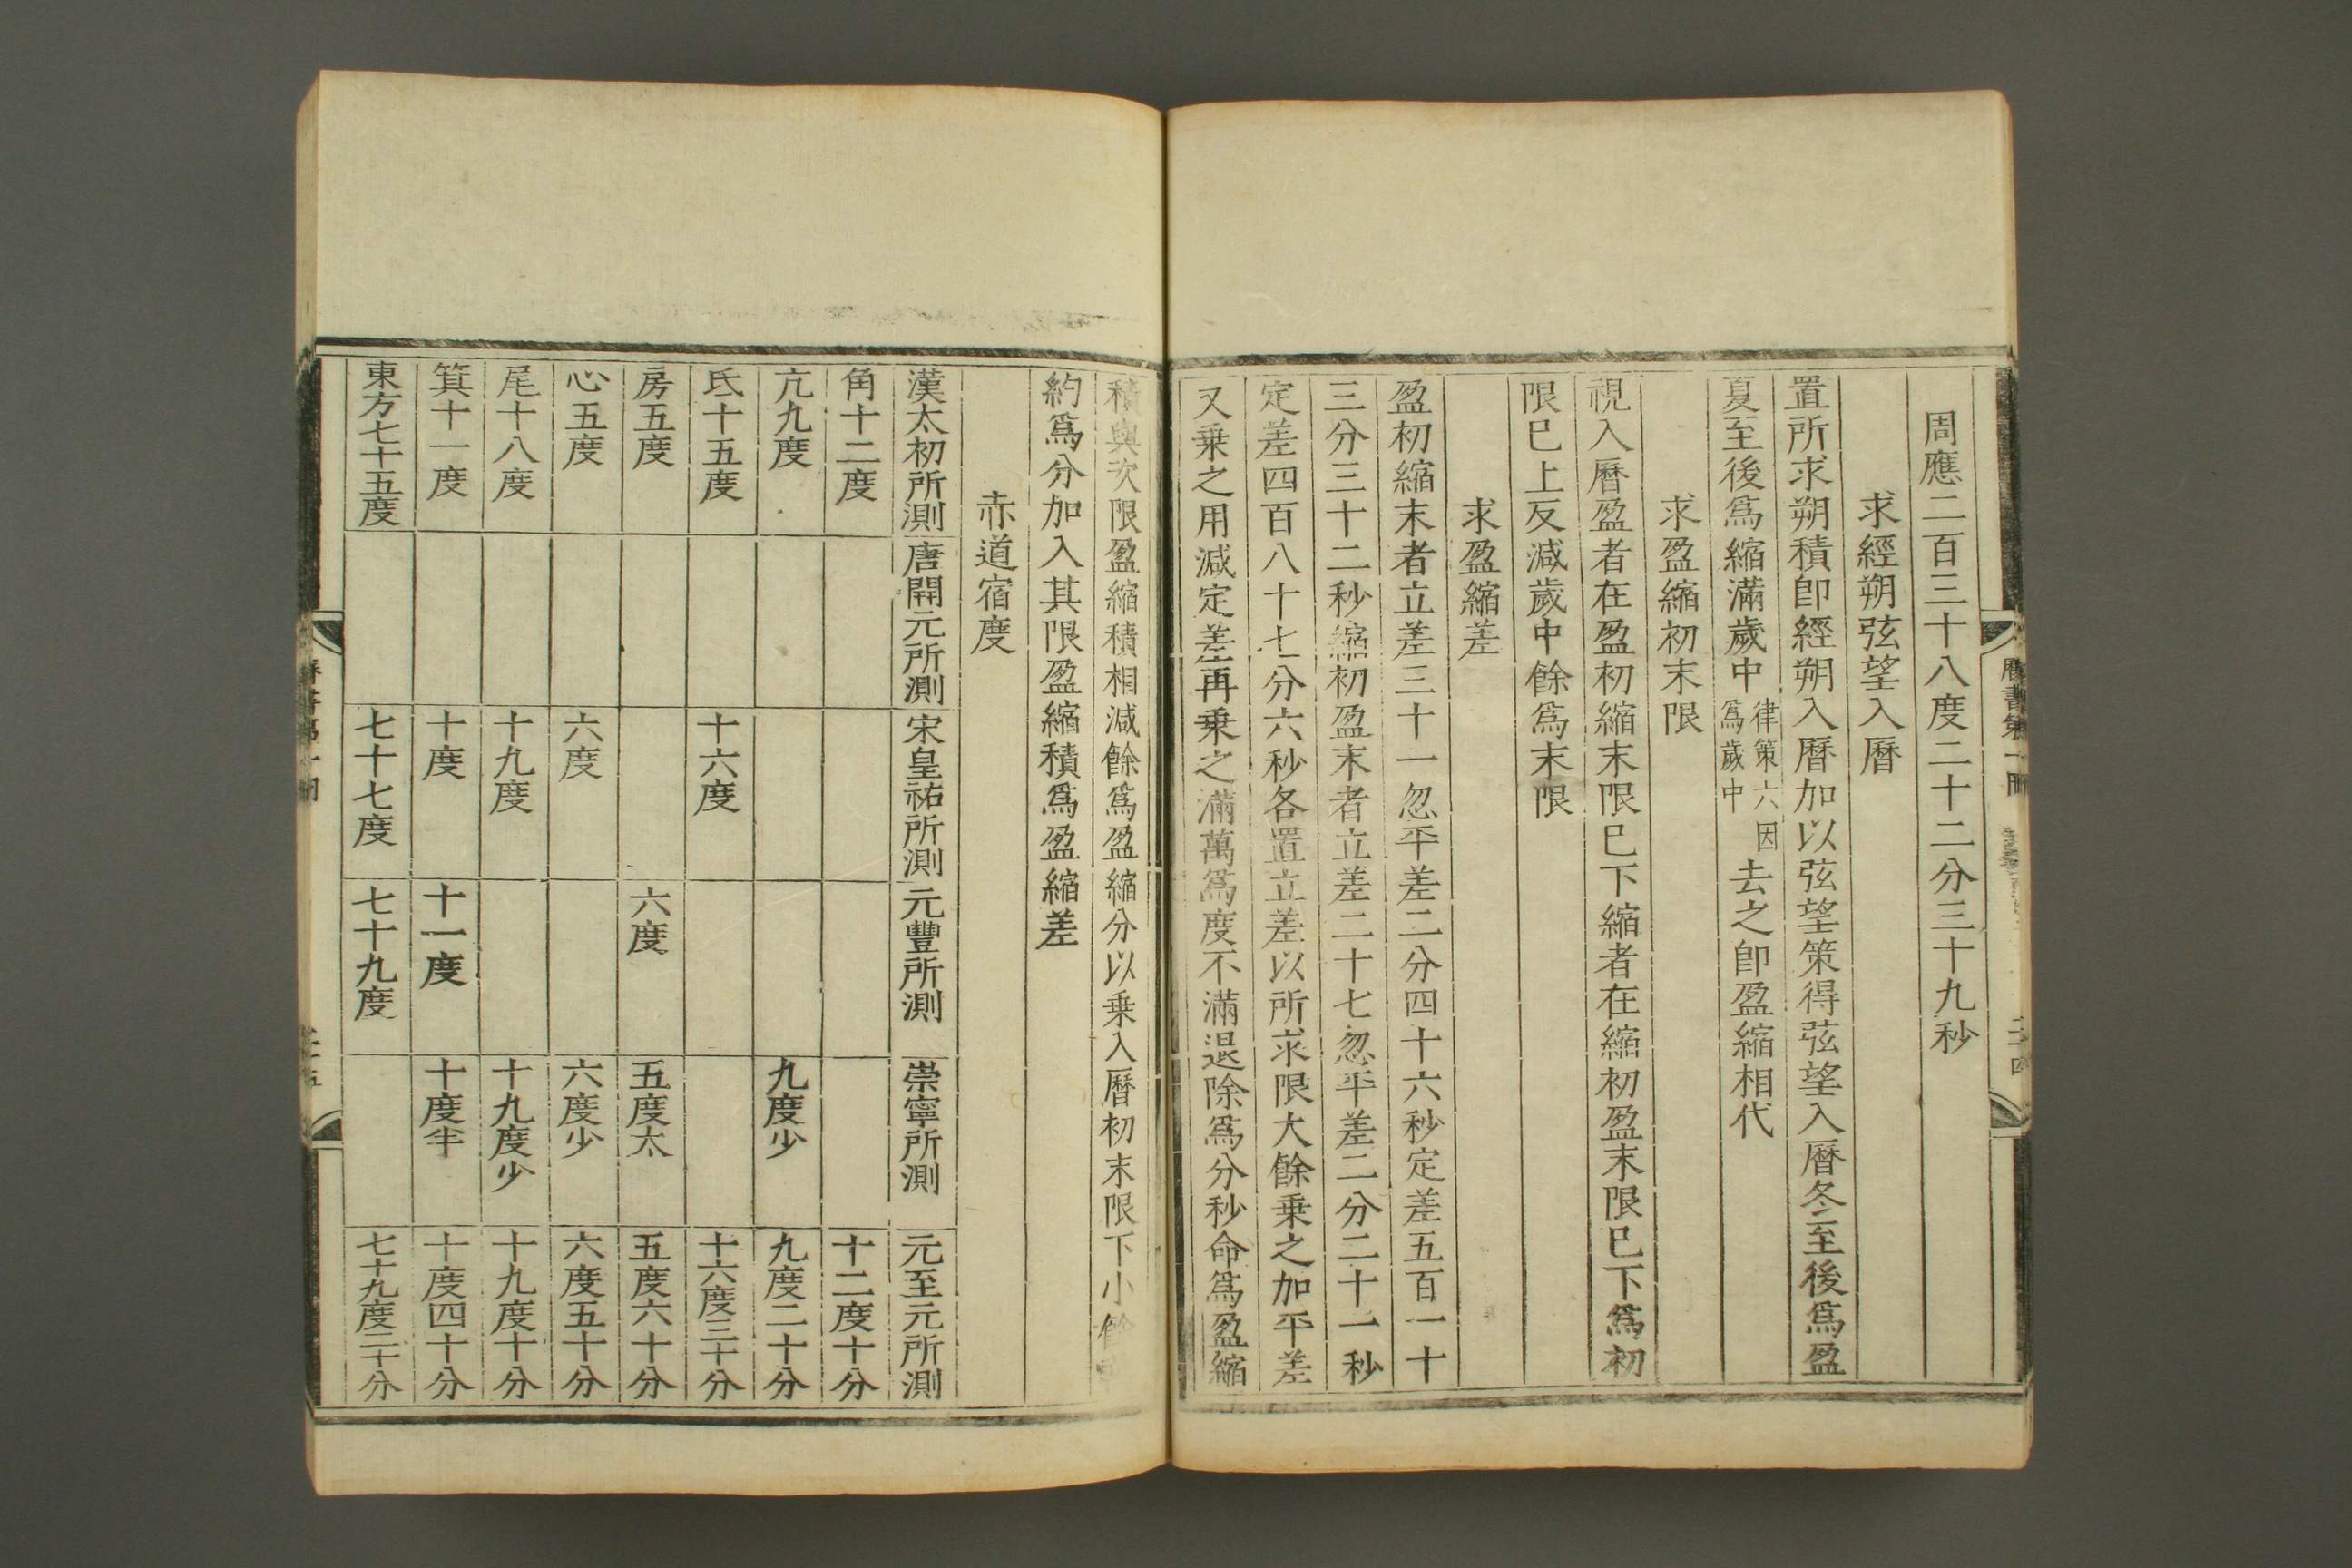 周應二百三十八度二十二分三十九秒
求經朔弦望入曆
置所求朔積卽經朔入曆加以弦望策得弦望入曆冬至後爲盈
夏至後爲縮滿歲中律策六因爲歲中去之卽盈縮相代
求盈縮初末限
視入曆盈者在盈初縮末限巳下縮者在縮初盈末限巳下爲初
限巳上反減歲中餘爲末限
求盈縮差
盈初縮末者立差三十一忽平差二分四十六秒定差五百一十
三分三十二秒縮初盈末者立差二十七忽平差二分二十一秒
定差四百八十七分六秒各置立差以所求限大餘乗之加平差
又乗之用減定差再乗之滿萬爲度不滿退除爲分秒命爲盈縮
曆書第一冊
二十四
積與次限盈縮積相減餘爲盈縮分以乗入曆初末限下小餘
約爲分加入其限盈縮積爲盈縮差
赤道宿度
漢太初所測 唐開元所測 宋皇祐所測 元豐所測 崇寧所測 元至元所測
角十二度 十二度十分
亢九度 九度少 九度二十分
氐十五度 十六度 十六度三十分
房五度 六度 五度太 五度六十分
心五度 六度 六度少 六度五十分
尾十八度 十九度 十九度少 十九度十分
箕十一度 十度 十一度 十度半 十度四十分
東方七十五度 七十七度 七十九度 七十九度二十分